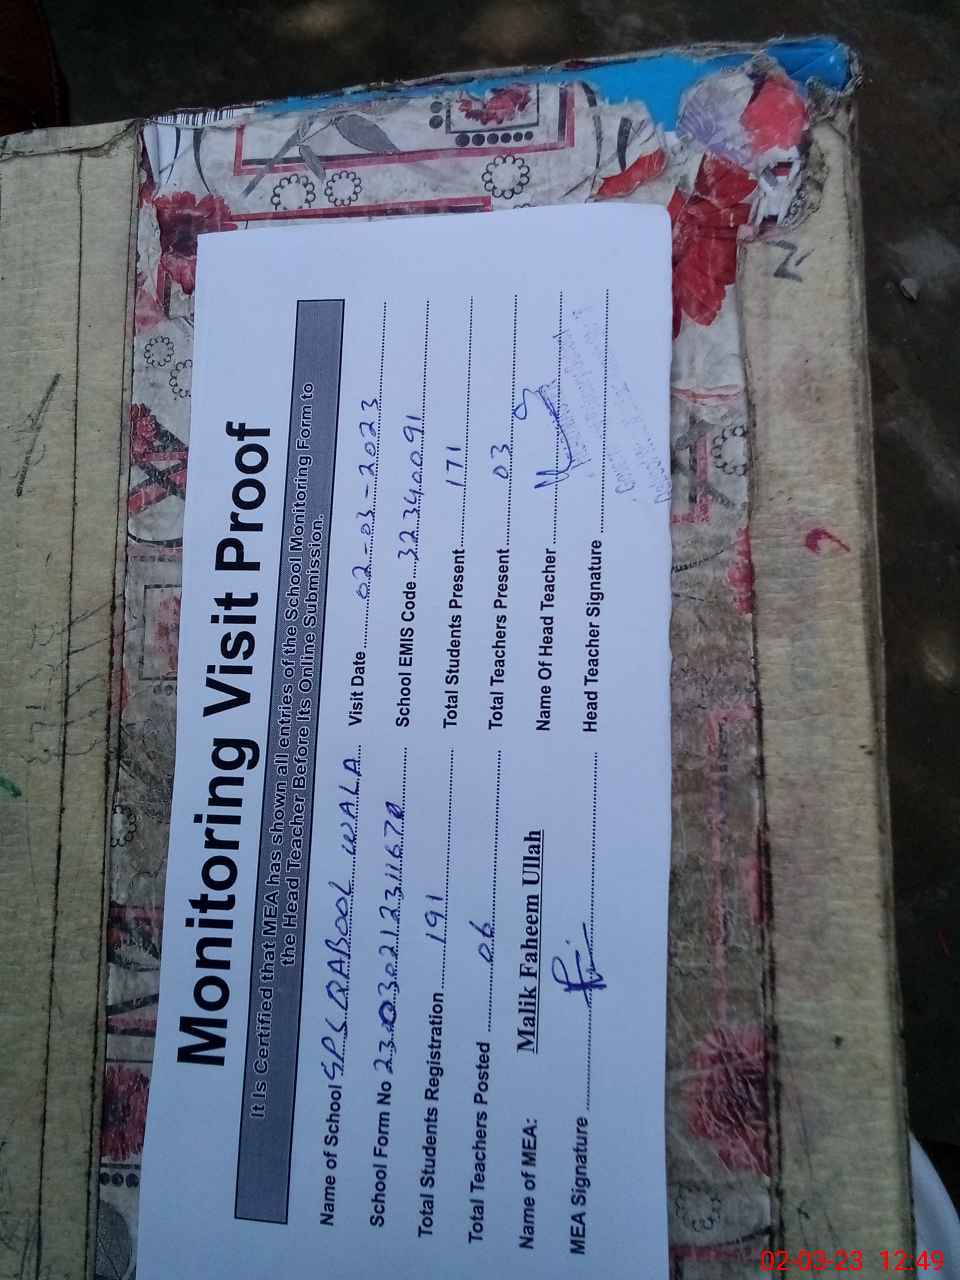 Monitoring Visit Proof
It Is Certified that MEA has shown all entries of the School Monitoring Form to
the Head Teacher Before Its Online Submission.
Name of School GPS QABOOL WALA Visit Date 02-03-2023
School Form No School EMIS Code 32340091
Total Students Registration 191 Total Students Present 171
Total Teachers Posted 06 Total Teachers Present 03
Name of MEA: Malik Faheem Ullah Name Of Head Teacher
MEA Signature Head Teacher Signature
02-03-23 12:49